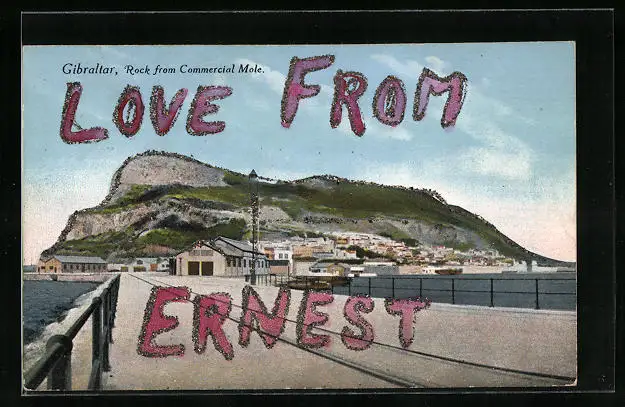 Gibraltar, Rock from Commercial Mole.
LOVE FROM
ERNEST